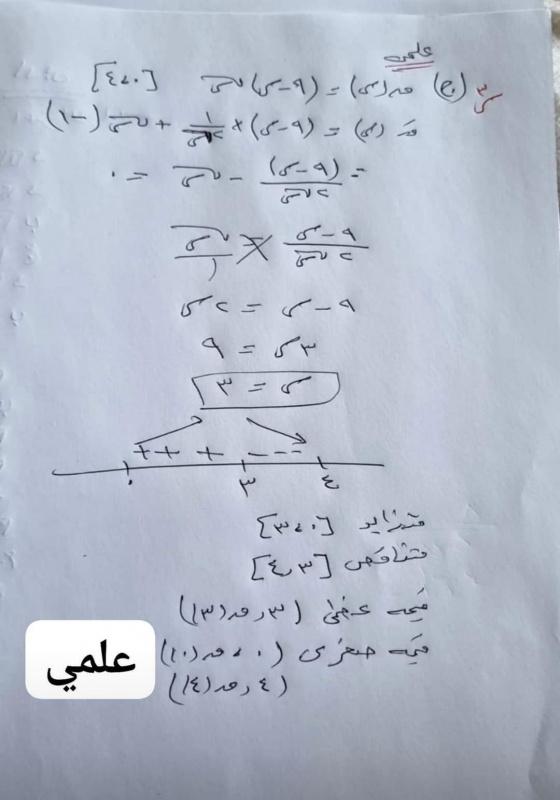 علمي
س٢ ج) ق(س) = (٩-س) √س [٠،٤]
قَ(س) = (٩-س) × ١/٢√س + √س (-١)
= (٩-س)/٢√س - √س = ٠
٩-س/٢√س = √س/١
٩-س = ٢س
٣س = ٩
س = ٣
++ + ---
٠ ٣ ٤
متزايد [٠،٣]
متناقص [٣،٤]
قيمه عظمى (٣، ق(٣))
قيمه صغرى (٠، ق(٠))
(٤، ق(٤))
علمي